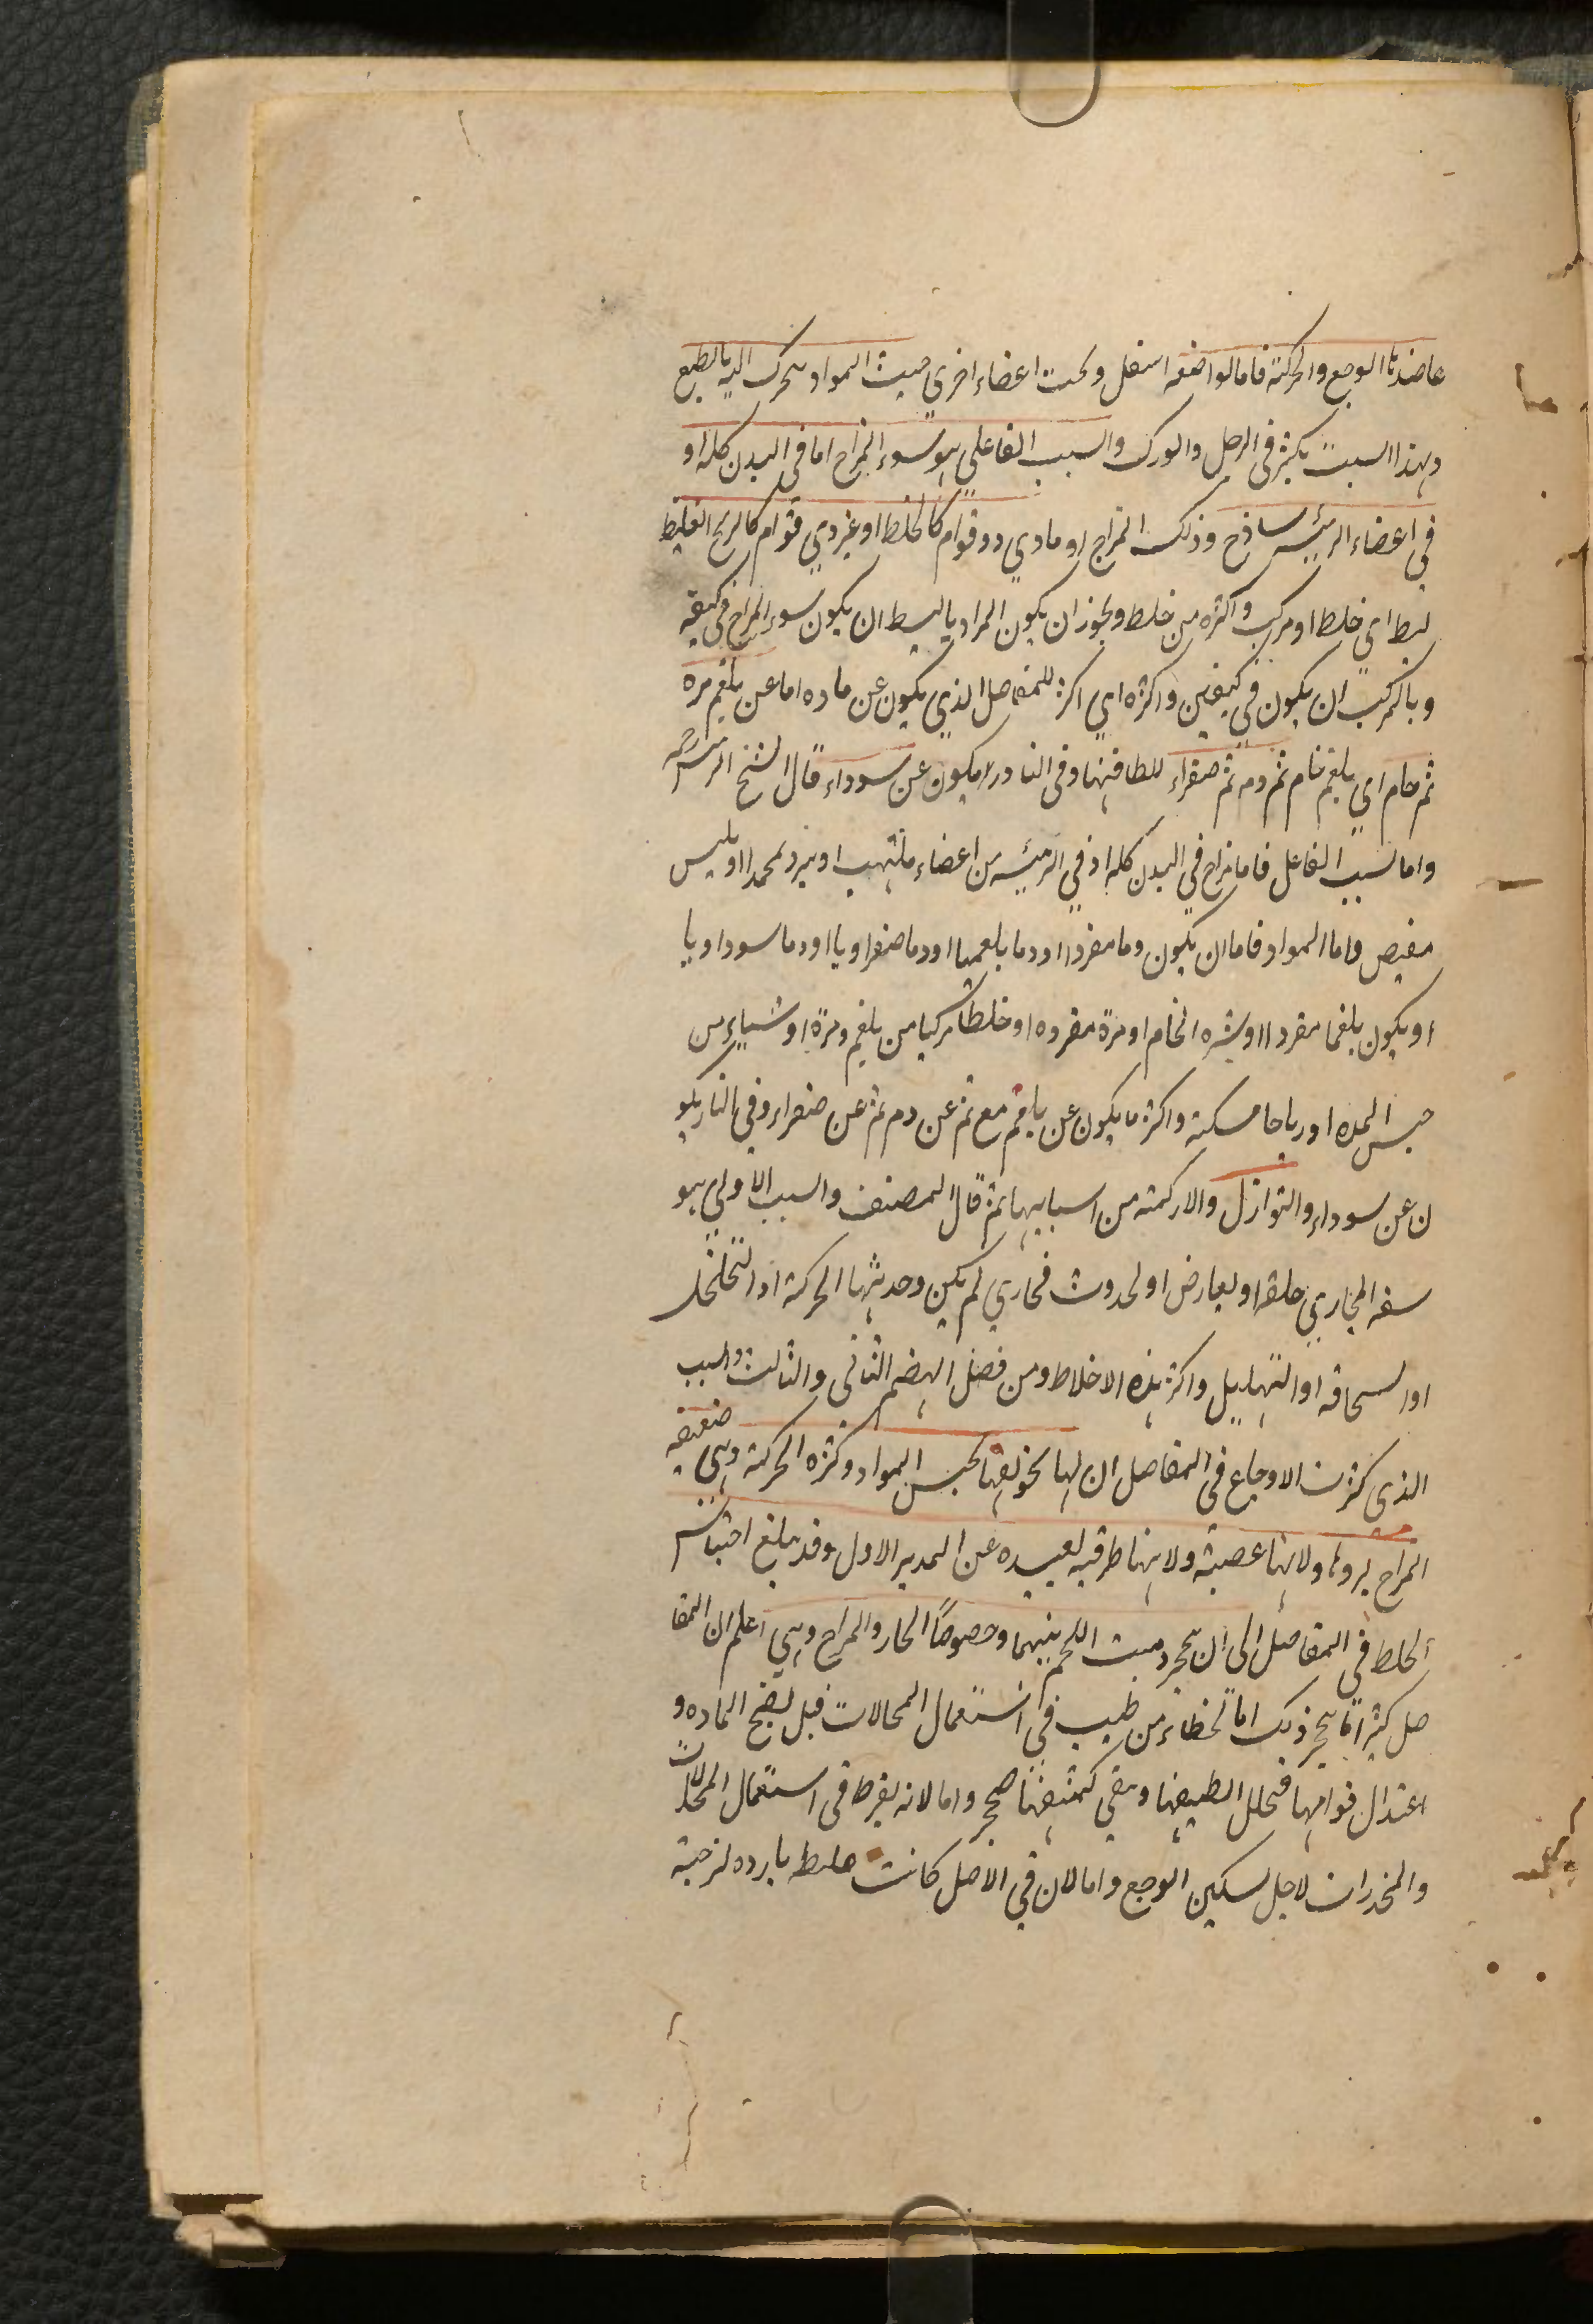 عاضدنا الوجع والحركة فاما لواضعه اسفل وتحت اعضاء اخري حيث المواد يتحرك اليه بالطبع
وبهذا السبب يكثر في الرجل والورك والسبب الفاعلي هو سوء المزاج اما في البدن كله او
في اعضاء الرئيسه ساذج وذلك المزاج او مادي ذو قوام كالخلط او غير ذي قوام كالريح الغليظ
بسيط اي خلط او مركب واكثره من خلط ويجوز ان يكون المراد بالبسيط ان يكون سوء المزاج في كيفيه
وبالمركب ان يكون في كيفيتين واكثره اي اكثر للمفاصل الذي يكون عن ماده اما عن بلغم مره
ثم خام اي بلغم خام ثم دم ثم صفراء للطافتها وفي النادر لا يكون عن سوداء قال الشيخ الرئيس رحمه
واما السبب الفاعل فاما مزاج في البدن كله او في الرئيسه من اعضاء ملتهب او مبرد مجمدا او يابس
مقبض واما المواد فاما ان يكون دما مفردا او دما بلغميا او دما صفراويا او دما سوداويا
او يكون بلغما مفردا او بشره الخام او مرة مفرده او خلطا مركبا من بلغم ومرة او شيئا من
جنس المده او رياحا مسكنه واكثر ما يكون عن بلغم مع ثم عن دم ثم عن صفراء وفي النادر يكو
ن عن سوداء والنوازل والاركمته من اسبابها ثم قال المصنف والسبب الاولي هو
سعه المجاري خلقه او لعارض او لحدوث مجاري لم يكن وحدثها الحركة او التخلخل
او السخافه او التهليل واكثر هذه الاخلاط ومن فضل الهضم الثاني والثالث والسبب
الذي كثرت الاوجاع في المفاصل ان لها تجويفها لحبس المواد وكثره الحركة وهي ضعيفه
المزاج لبرودها ولانها عصبية ولانها طرفيه بعيده عن المدبر الاول وقد يبلغ احتباس
الخلط في المفاصل الى ان يتحجر وينبت اللحم بينهما وخصوصا الحار والمزاج وهي اعلم ان المفا
صل كثيرا ما يتحجر ذلك اما لخطاء من طبيب في استعمال المحللات قبل نضج الماده و
اعتدال قوامها فيحلل لطيفها ويبقي كثيفها صحجر واما لانه يفرط في استعمال المحللات
والمخدرات لاجل تسكين الوجع واما لان في الاصل كانت خلط بارده لزجية